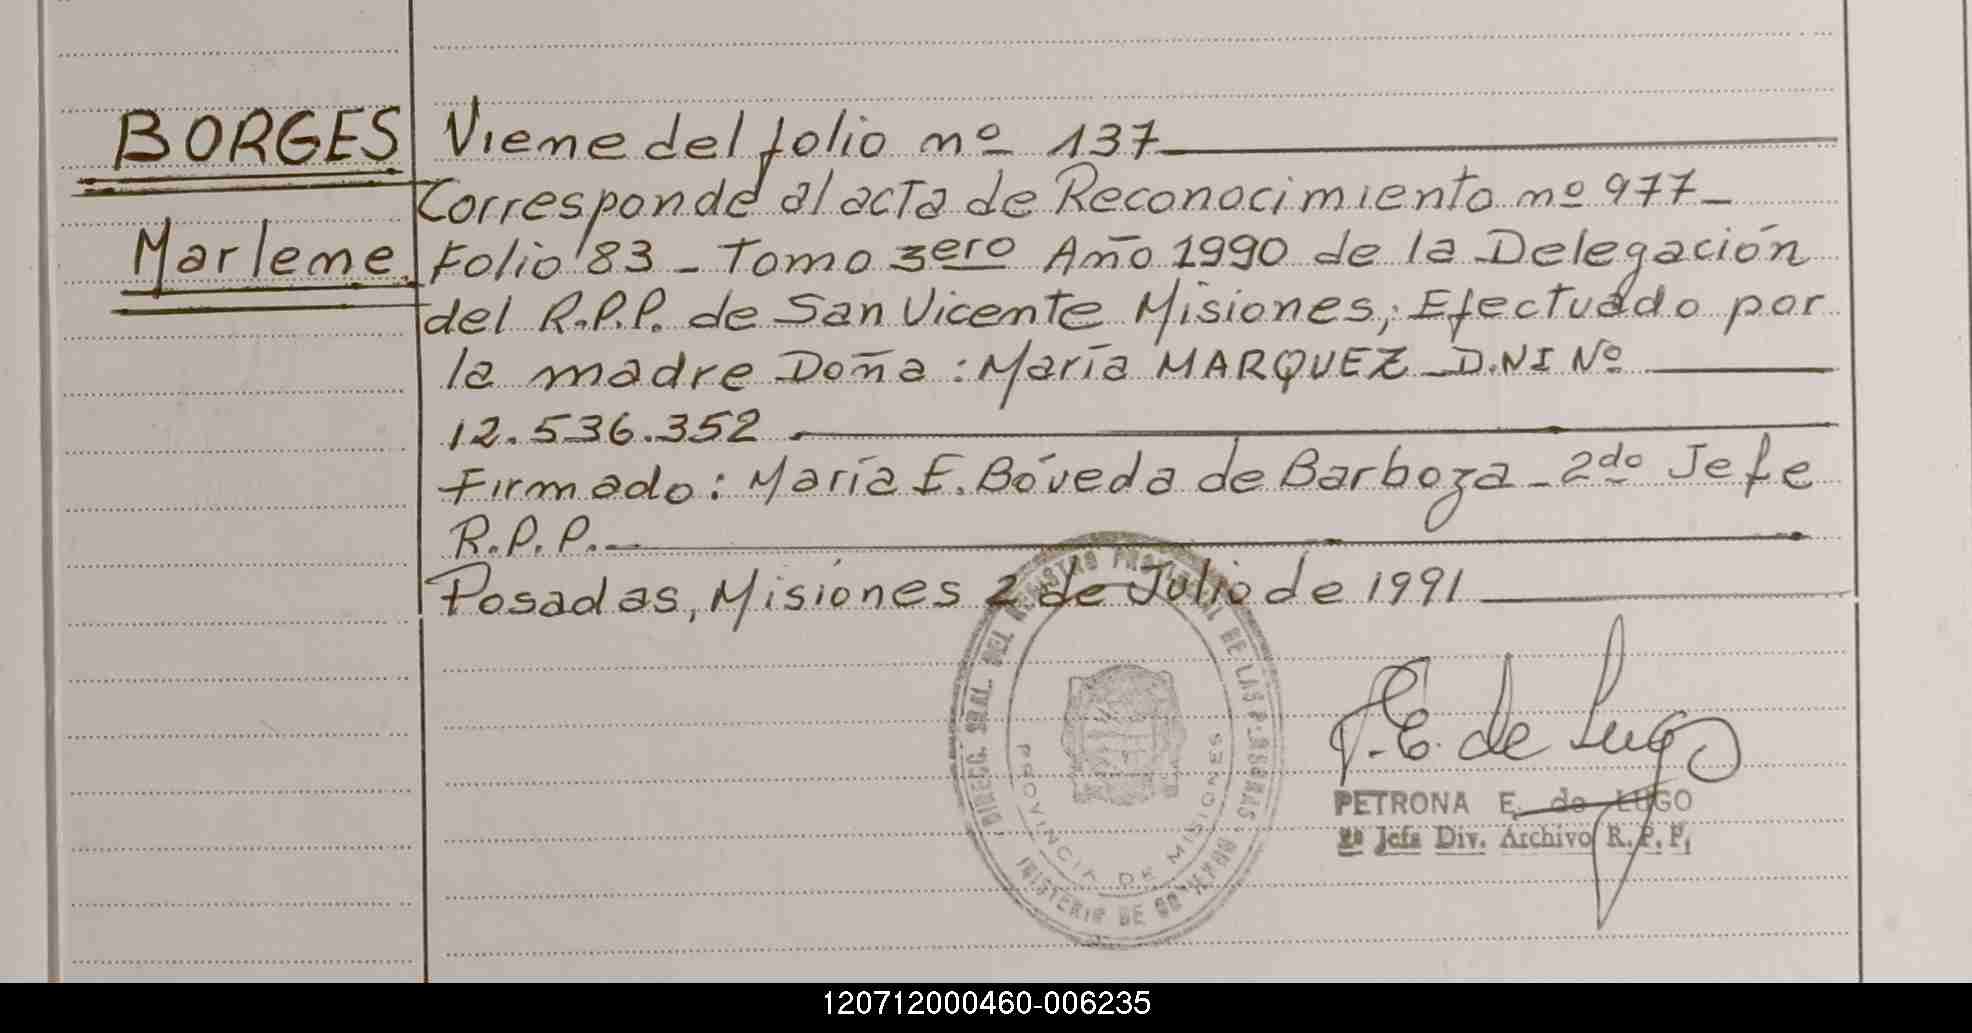 BORGES
Marlene.
Viene del folio nº 137
Corresponde al acta de Reconocimiento nº 977_
Folio 83 _ Tomo 3ero Año 1990 de la Delegación
del R.P.P. de San Vicente Misiones; Efectuado por
la madre Doña: María MARQUEZ _ D.NI Nº
12.536.352
Firmado: María E. Bóveda de Barboza _ 2do Jefe
R.P.P.
Posadas, Misiones 2 de Julio de 1991
DIRECC. GRAL. DEL REGISTRO PROVINCIAL DE LAS PERSONAS
PROVINCIA DE MISIONES
MINISTERIO DE GOBIERNO
P.E. de Lugo
PETRONA E. de LUGO
2º Jefa Div. Archivo R.P.P.
120712000460-006235